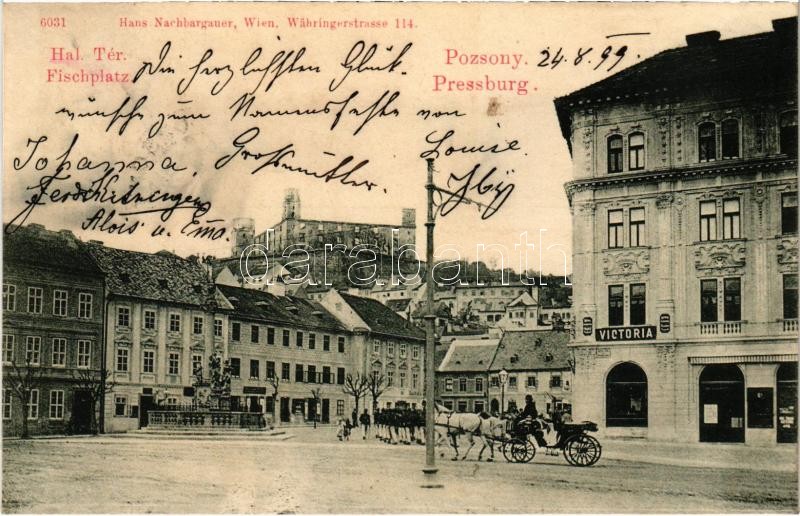 6031 Hans Nachbargauer, Wien, Währingerstrasse 114.
Hal. Tér.
Fischplatz.
Pozsony.
Pressburg.
24.8.99
Die herzlichsten Glück-
wünsche zum Namensfeste von
Johanna, Grossmutter. Louise.
Alois u. Ema.
darabanth
VICTORIA